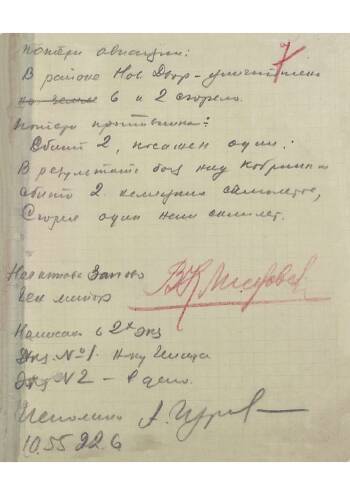 7
Потери авиации:
В районе Нов Двор - уничтожено
на земле 6 и 2 сгорело.
Потери противника:
Сбит 2, посажен один.
В результате боя над Кобрином
сбито 2 немецких самолетов,
Сгорел один наш самолет.
Нач штаба Запово
Ген майор
Написан в 2х экз
Экз. №1. Н-ку Генштаба
Экз №2 - в дело.
Исполнил
10.55 22.6